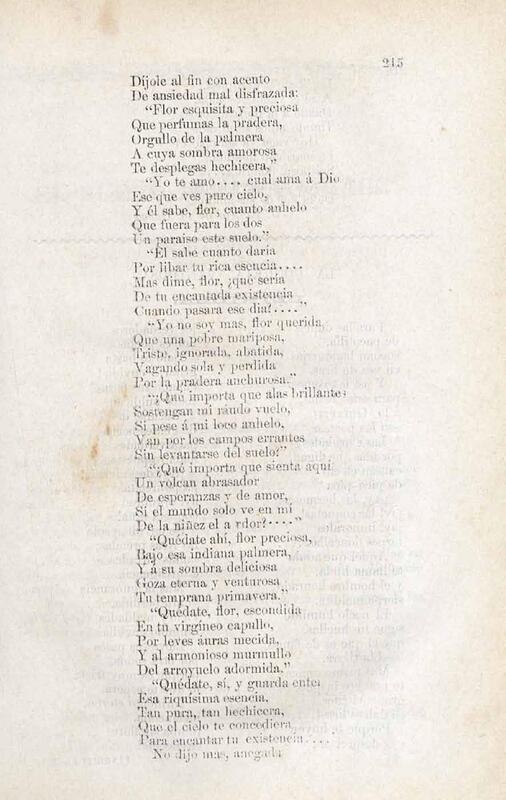 215
Díjole al fin con acento
De ansiedad mal disfrazada:
“Flor esquisita y preciosa
Que perfumas la pradera,
Orgullo de la palmera
A cuya sombra amorosa
Te desplegas hechicera,”
“Yo te amo.... cual ama á Dio
Ese que ves puro cielo,
Y él sabe, flor, cuanto anhelo
Que fuera para los dos
Un paraiso este suelo.”
“El sabe cuanto daría
Por libar tu rica esencia....
Mas dime, flor, ¿qué sería
De tu encantada existencia
Cuando pasara ese dia?....”
“Yo no soy mas, flor querida,
Que una pobre mariposa,
Triste, ignorada, abatida,
Vagando sola y perdida
Por la pradera anchurosa.”
“¿Qué importa que alas brillantes
Sostengan mi ráudo vuelo,
Si pese á mi loco anhelo,
Van por los campos errantes
Sin levantarse del suelo?”
“¿Qué importa que sienta aquí
Un volcan abrasador
De esperanzas y de amor,
Si el mundo solo ve en mí
De la niñez el a rdor?....”
“Quédate ahí, flor preciosa,
Bajo esa indiana palmera,
Y á su sombra deliciosa
Goza eterna y venturosa
Tu temprana primavera.”
“Quédate, flor, escondida
En tu virgíneo capullo,
Por leves áuras mecida,
Y al armonioso murmullo
Del arroyuelo adormida.”
“Quédate, sí, y guarda ente
Esa riquísima esencia,
Tan pura, tan hechicera,
Que el cielo te concediera
Para encantar tu existencia....
No dijo mas, anegada